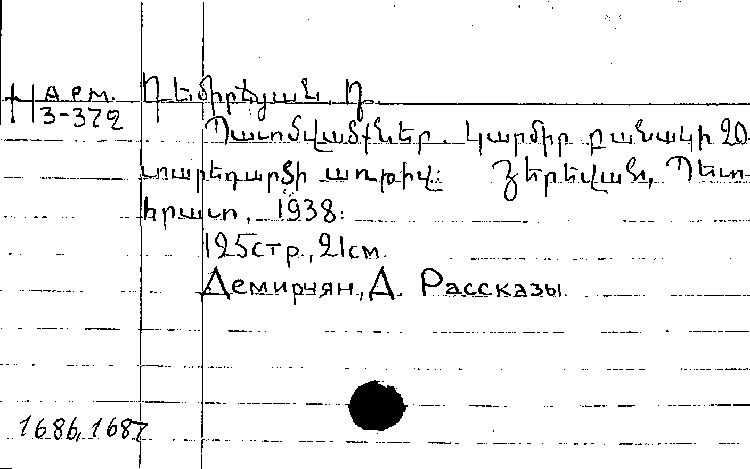 Арм. Դեմիրճյան Դ.
3-372
Պատմվածքներ. Կարմիր բանակի 20
տարեդարձի առթիվ: Յերեվան, Պետ
հրատ, 1938:
125стр, 21см.
Демирчян, Д. Рассказы
1686, 1687